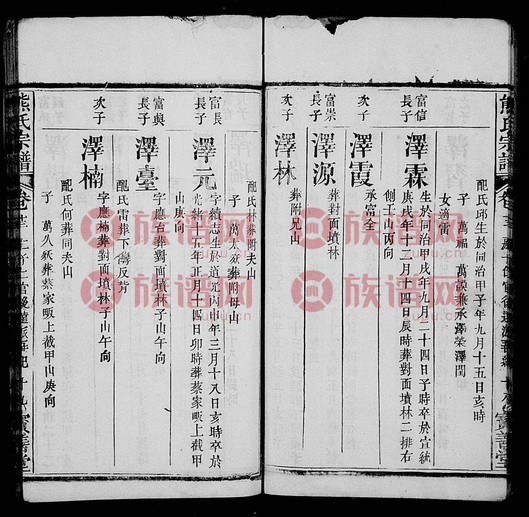 熊氏宗譜
配氏邱生於同治甲子年九月十五日亥時
子 萬福 萬謨兼承澤榮澤閏
女適雷
富信長子 澤霖 生於同治甲戌年九月二十四日子時卒於宣統
庚戌年十二月初四日辰時葬對面墳林二排右
側子山丙向
次子 澤霞 承富全
富崇長子 澤源 葬對面墳林
次子 澤林 葬附兄山
富長長子 澤元 字續志生於道光丙申年三月十八日亥時卒於
光緒 年正月十四日卯時葬蔡家畈上截甲
山庚向
配氏林葬附夫山
子 萬太 葬附母山
富典長子 澤臺 字應台葬對面墳林子山午向
配氏雷葬下灣反背
次子 澤楠 字應楠葬對面墳林子山午向
配氏何葬同夫山
子 萬久 葬蔡家畈上截甲山庚向
熊氏宗譜
寶善堂
族譜网
zupu.cn
族譜网
zupu.cn